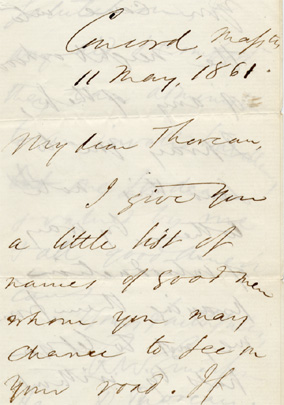 Concord, Mass.
11 May, 1861.
My dear Thoreau,
I give you
a little list of
names of good men
whom you may
chance to see on
your road. If